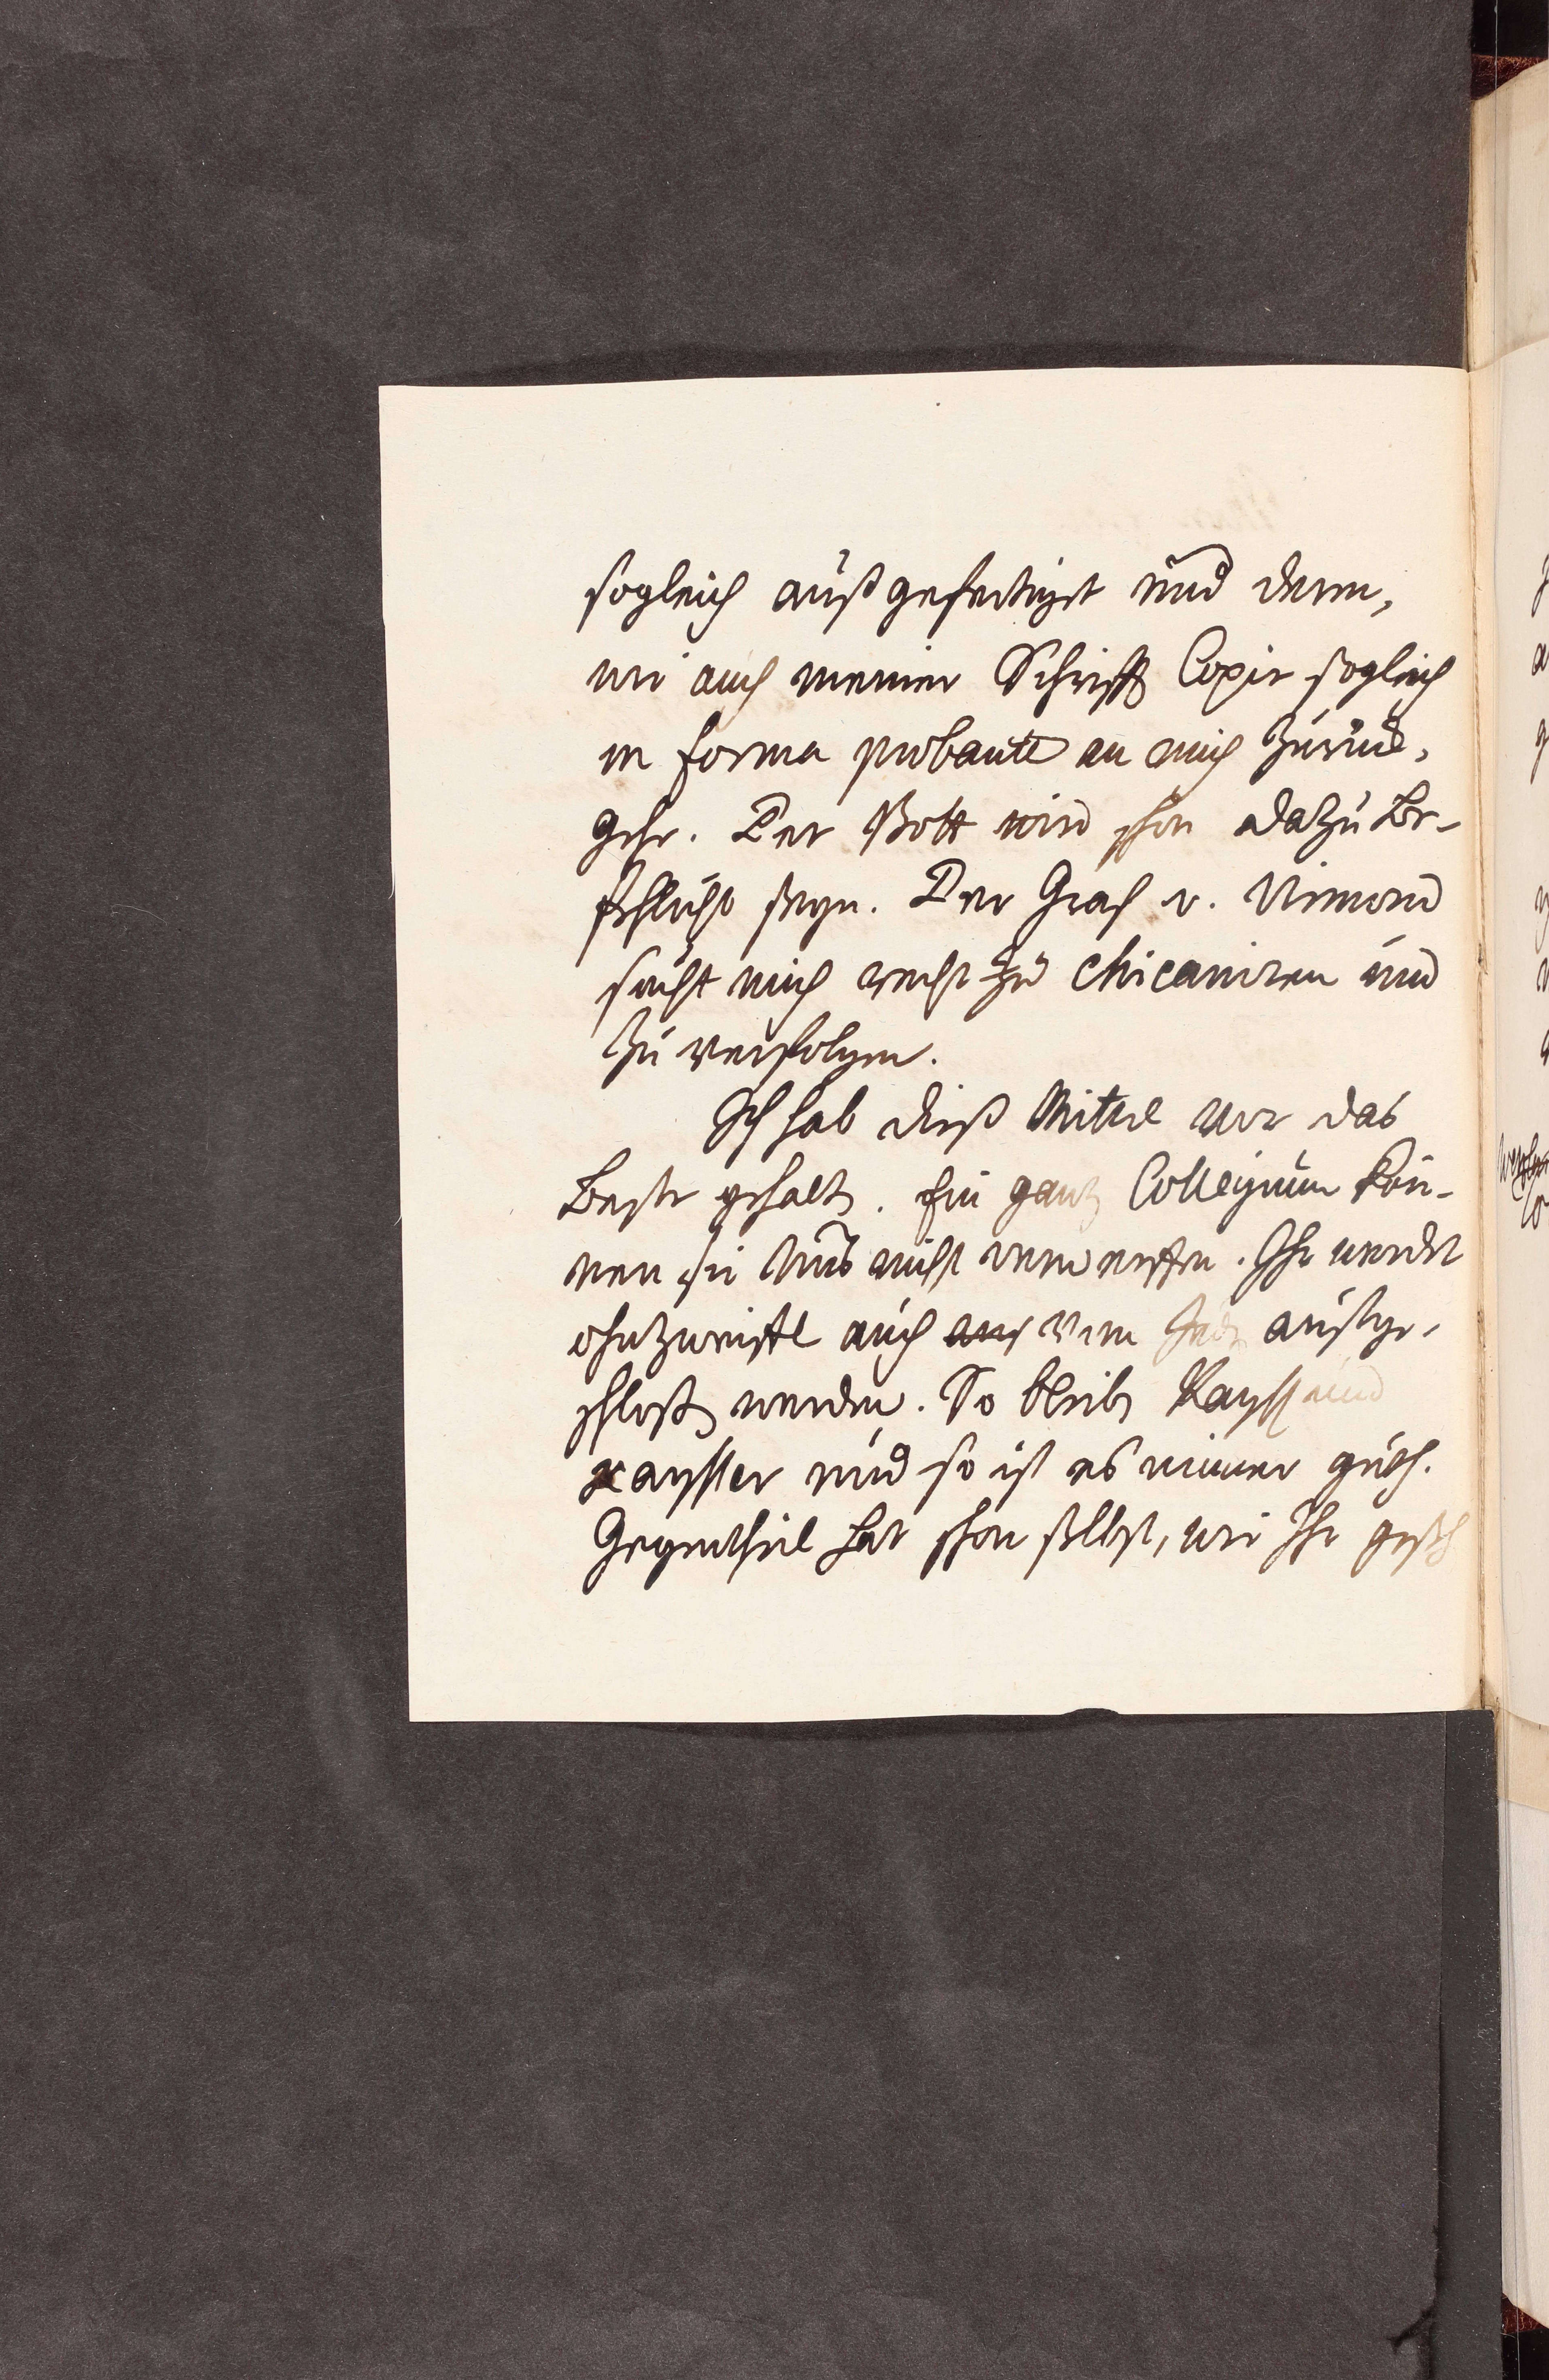 sogleich außgefertiget und dann,
wie auch meiner Schrifft Copie sogleich
in forma probante an mich zurück,
gehe. Der Bott wird schon dazu be-
fehlicht seyn. Der Graf v. Virmond
sucht mich recht zu chicaniren und
zu verfolgen.
Ich hab dieß Mittel vor das
beste gehalten. Ein ganz Collegium kön-
nen sie uns nicht verwerffen. Ihr werdet
ohnzweiffel auch vom außge-
schloßen werden. So bleibt und
so ist es immer guth.
Gegentheil hat schon selbst, wie Ihr